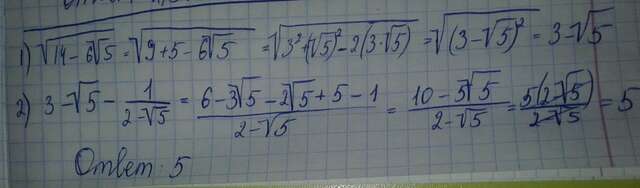 1) √(14 − 6√5) = √(9 + 5 − 6√5) = √(3² + (√5)² − 2(3·√5)) = √((3 − √5)²) = 3 − √5
2) 3 − √5 − 1/(2 − √5) = (6 − 3√5 − 2√5 + 5 − 1)/(2 − √5) = (10 − 5√5)/(2 − √5) = 5(2 − √5)/(2 − √5) = 5
Ответ: 5